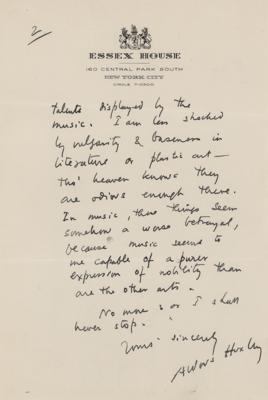 2
ESSEX HOUSE
160 CENTRAL PARK SOUTH
NEW YORK CITY
CIRCLE 7-0300
talents displayed by the
music. I am less shocked
by vulgarity & baseness in
literature or plastic art —
tho' heaven knows they
are odious enough there.
In music, these things seem
somehow a worse betrayal,
because music seems to
me capable of a purer
expression of nobility than
are the other arts.
No more, or I shall
never stop.
Yours sincerely
Aldous Huxley